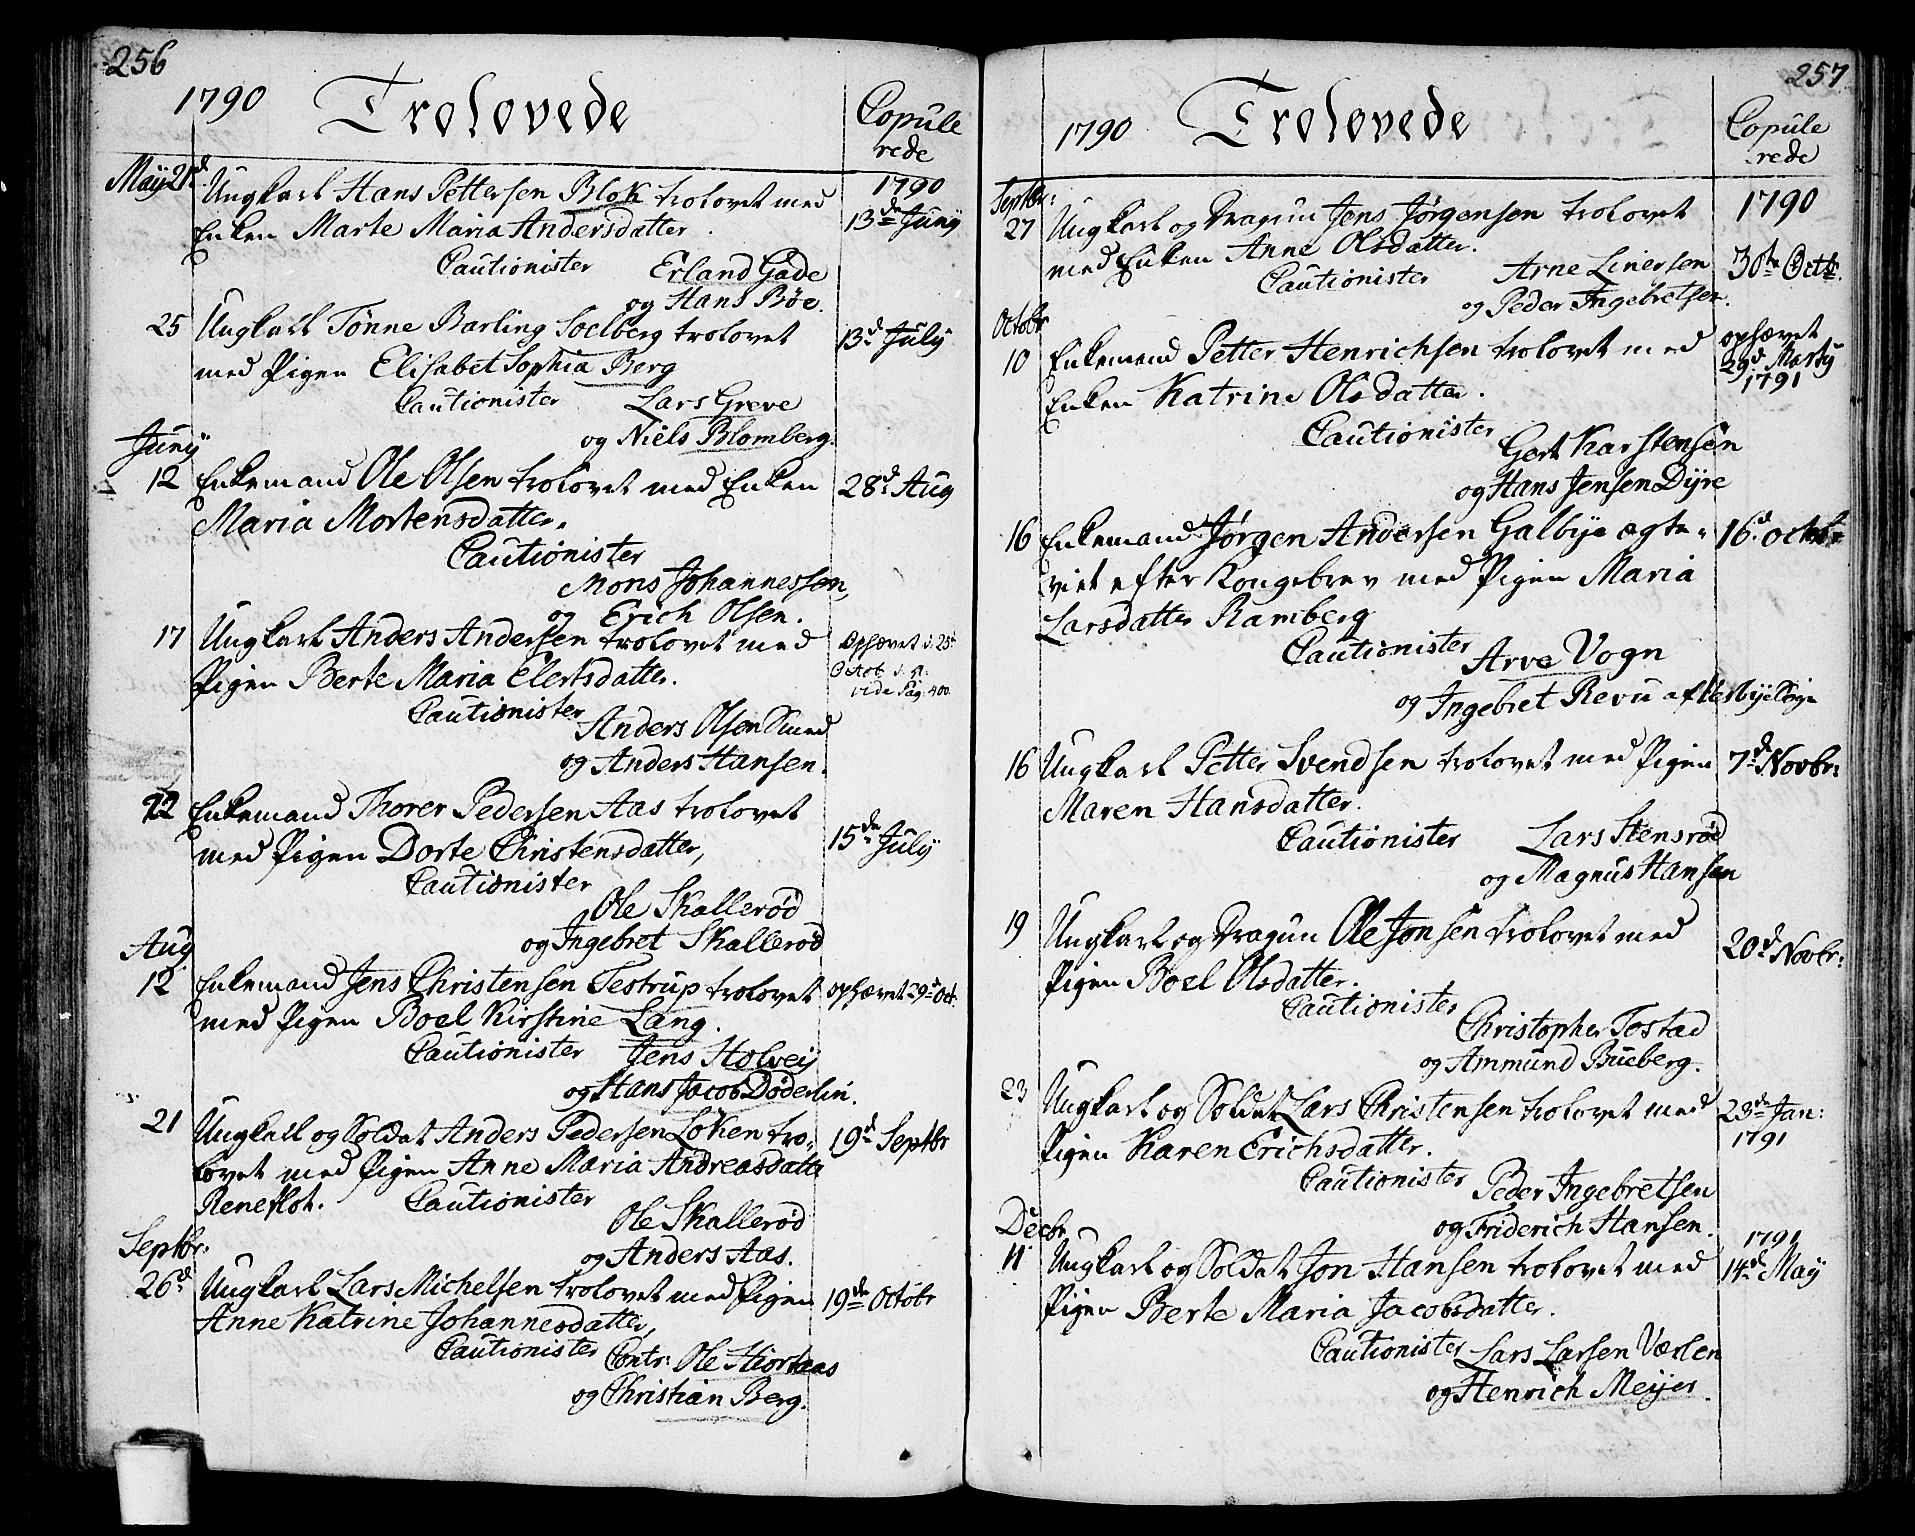 256
1790 Trolovede
Copule
rede
May 21d Ungkarl Hans Pettersen Blok trolovet med
1790
Enken Marte Maria Andersdatter.
13de Juny
Cautionister Erland Gade
og Hans Böe.
25 Ungkarl Tönne Barling Soelberg trolovet
13d July
med Pigen Elisabet Sophia Berg
Cautionister Lars Greve
og Niels Blomberg.
Juny
12 Enkemand Ole Olsen trolovet med Enken
28d Aug
Maria Mortensdatter.
Cautionister
Mons Johannessen,
og Erich Olsen.
17 Ungkarl Anders Andersen trolovet med
Ophævet d. 25d
Pigen Berte Maria Elertsdatter.
Octob.
vide Pag. 400
Cautionister
Anders Olsen Smed
og Anders Hansen.
22 Enkemand Thorer Pedersen Aas trolovet
med Pigen Dorte Christensdatter,
15de July
Cautionister
Ole Skallerød
og Ingebret Skallerød
Aug
12 Enkemand Jens Christensen Testrup trolovet
ophævet 29d Oct.
med Pigen Boel Kirstine Lang.
Cautionister Jens Holveij
og Hans Jacob Döderlin.
21 Ungkarl og Soldat Anders Pedersen Löken tro-
19d Septbr
lovet med Pigen Anne Maria Andreasdatter
Reneflot. Cautionister
Ole Skallerød
og Anders Aas.
Septbr:
26d Ungkarl Lars Michelsen trolovet med Pigen
19de Octobr
Anne Katrine Johannesdatter,
Cautionister Contr: Ole Hiortaas
og Christian Berg.
257
1790 Trolovede
Copule
rede
Septbr:
27 Ungkarl og Dragun Jens Jørgensen trolovet
1790
med Enken Anne Olsdatter.
30te Octb.
Cautionister Arne Linersen
og Peder Ingebretsen.
Octobr
10 Enkemand Petter Henrichsen trolovet med
ophævet
29d Marty
1791
Enken Katrine Olsdatter.
Cautionister
Gert Karstensen
og Hans Jensen Dyre
16 Enkemand Jørgen Andersen Galbye ægte-
16d octobr
viet efter Kongebrev med Pigen Maria
Larsdatter Ramberg
Cautionister
Arve Vogn
og Ingebret Revu af
16 Ungkarl Petter Svendsen trolovet med Pigen
7d Novbr:
Maren Hansdatter.
Cautionister Lars Stensrød
og Magnus Hansen
19 Ungkarl og Dragun Ole Jonsen trolovet med
20d Novbr:
Pigen Boel Olsdatter.
Cautionister
Christopher Tostad
og Ammund Bueberg.
23 Ungkarl og Soldat Lars Christensen trolovet med
23de Jan:
1791
Pigen Karen Erichsdatter.
Cautionister Peder Ingebretsen
og Friderich Hansen.
Decbr
11 Ungkarl og Soldat Jon Hansen trolovet med
1791
14de May
Pigen Berte Maria Jacobsdatter.
Cautionister Lars Larsen Værlen
og Henrich Meijer.